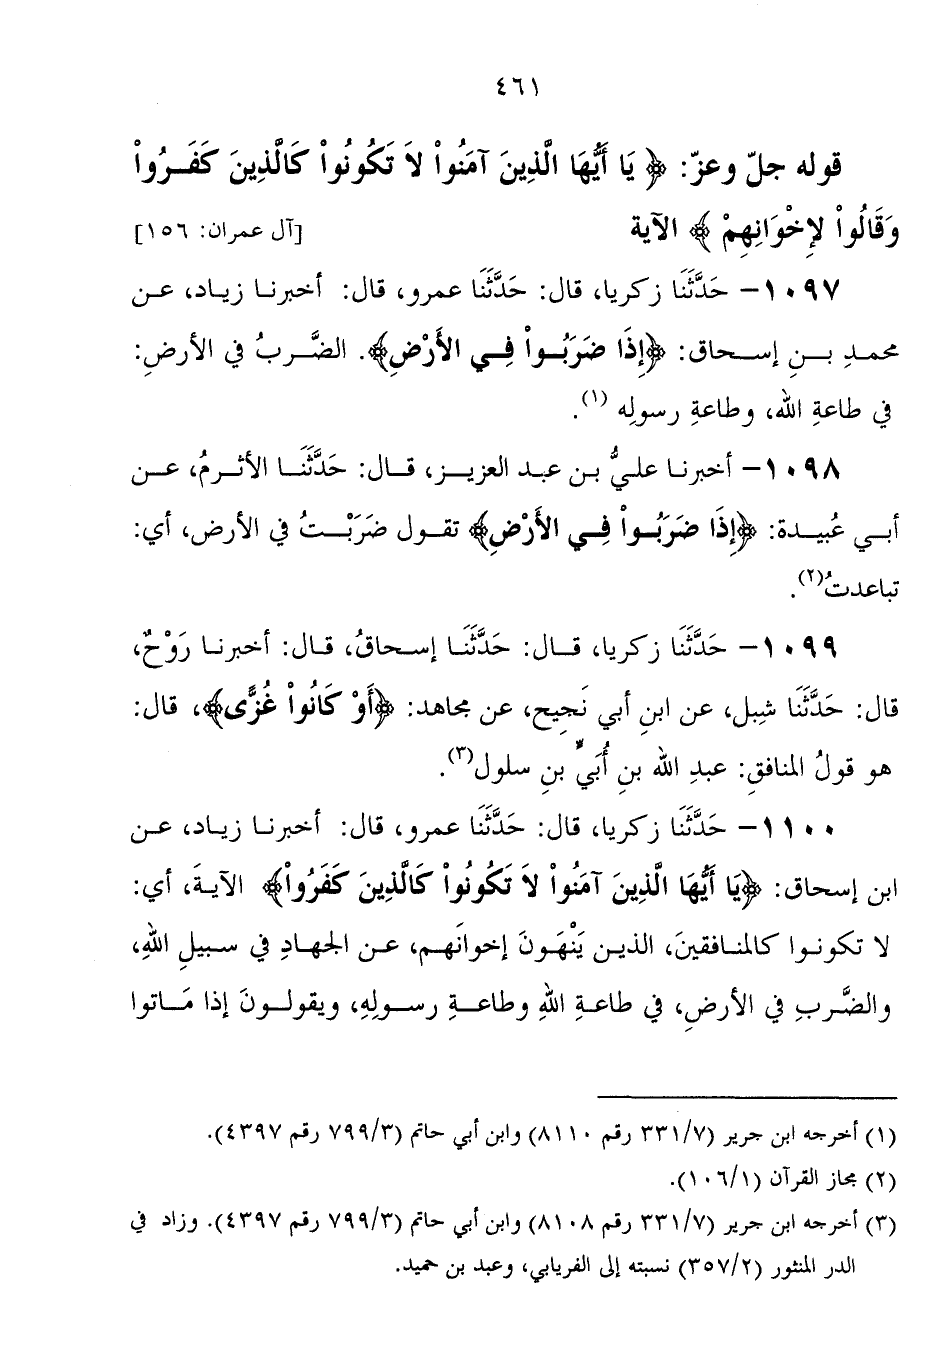 ٤٦١
قوله جلّ وعزّ: ﴿ يَا أَيُّهَا الَّذِينَ آمَنُواْ لاَ تَكُونُواْ كَالَّذِينَ كَفَـرُواْ
وَقَالُواْ لِإخْوَانِهِمْ ﴾ الآية [آل عمران: ١٥٦]
١٠٩٧- حَدَّثَنَا زكريا، قال: حَدَّثَنَا عمرو، قال: أخبرنـا زيـاد، عـن
محمـدِ بـنِ إسـحاق: ﴿إِذَا ضَرَبُـواْ فِـي الأَرْضِ﴾. الضَّـربُ في الأرضِ:
في طاعةِ الله، وطاعةِ رسولِه (١).
١٠٩٨- أخبرنـا علـيُّ بـن عبـد العزيـز، قـال: حَدَّثَنَـا الأثـرمُ، عـن
أبـي عُبيـدة: ﴿إِذَا ضَرَبُـواْ فِـي الأَرْضِ﴾ تقـول ضَرَبْـتُ في الأرض، أي:
تباعدتُ(٢).
١٠٩٩- حَدَّثَنَا زكريا، قـال: حَدَّثَنَـا إسـحاقُ، قـال: أخبرنـا رَوْحٌ،
قال: حَدَّثَنَا شِبل، عن ابنِ أبي نَجيح، عن مجاهد: ﴿أَوْ كَانُواْ غُزًّى﴾، قال:
هو قولُ المنافقِ: عبدِ الله بنِ أُبَيٍّ بنِ سلول(٣).
١١٠٠- حَدَّثَنَا زكريا، قال: حَدَّثَنَا عمرو، قال: أخبرنـا زيـاد، عـن
ابن إسحاق: ﴿يَا أَيُّهَا الَّذِينَ آمَنُواْ لاَ تَكُونُواْ كَالَّذِينَ كَفَرُواْ﴾ الآيـةَ، أي:
لا تكونـوا كالمنـافقينَ، الذيـن يَنْهَـوْنَ إخوانَهـم، عـن الجهـادِ في سـبيلِ اللهِ،
والضَّـربِ في الأرضِ، في طاعـةِ اللهِ وطاعـةِ رسـولِهِ، ويقولـونَ إذا مَـاتوا
(١) أخرجه ابن جرير (٣٣١/٧ رقم ٨١١٠) وابن أبي حاتم (٧٩٩/٣ رقم ٤٣٩٧).
(٢) مجاز القرآن (١٠٦/١).
(٣) أخرجه ابن جرير (٣٣١/٧ رقم ٨١٠٨) وابن أبي حاتم (٧٩٩/٣ رقم ٤٣٩٧). وزاد في
الدر المنثور (٣٥٧/٢) نسبته إلى الفريابي، وعبد بن حميد.